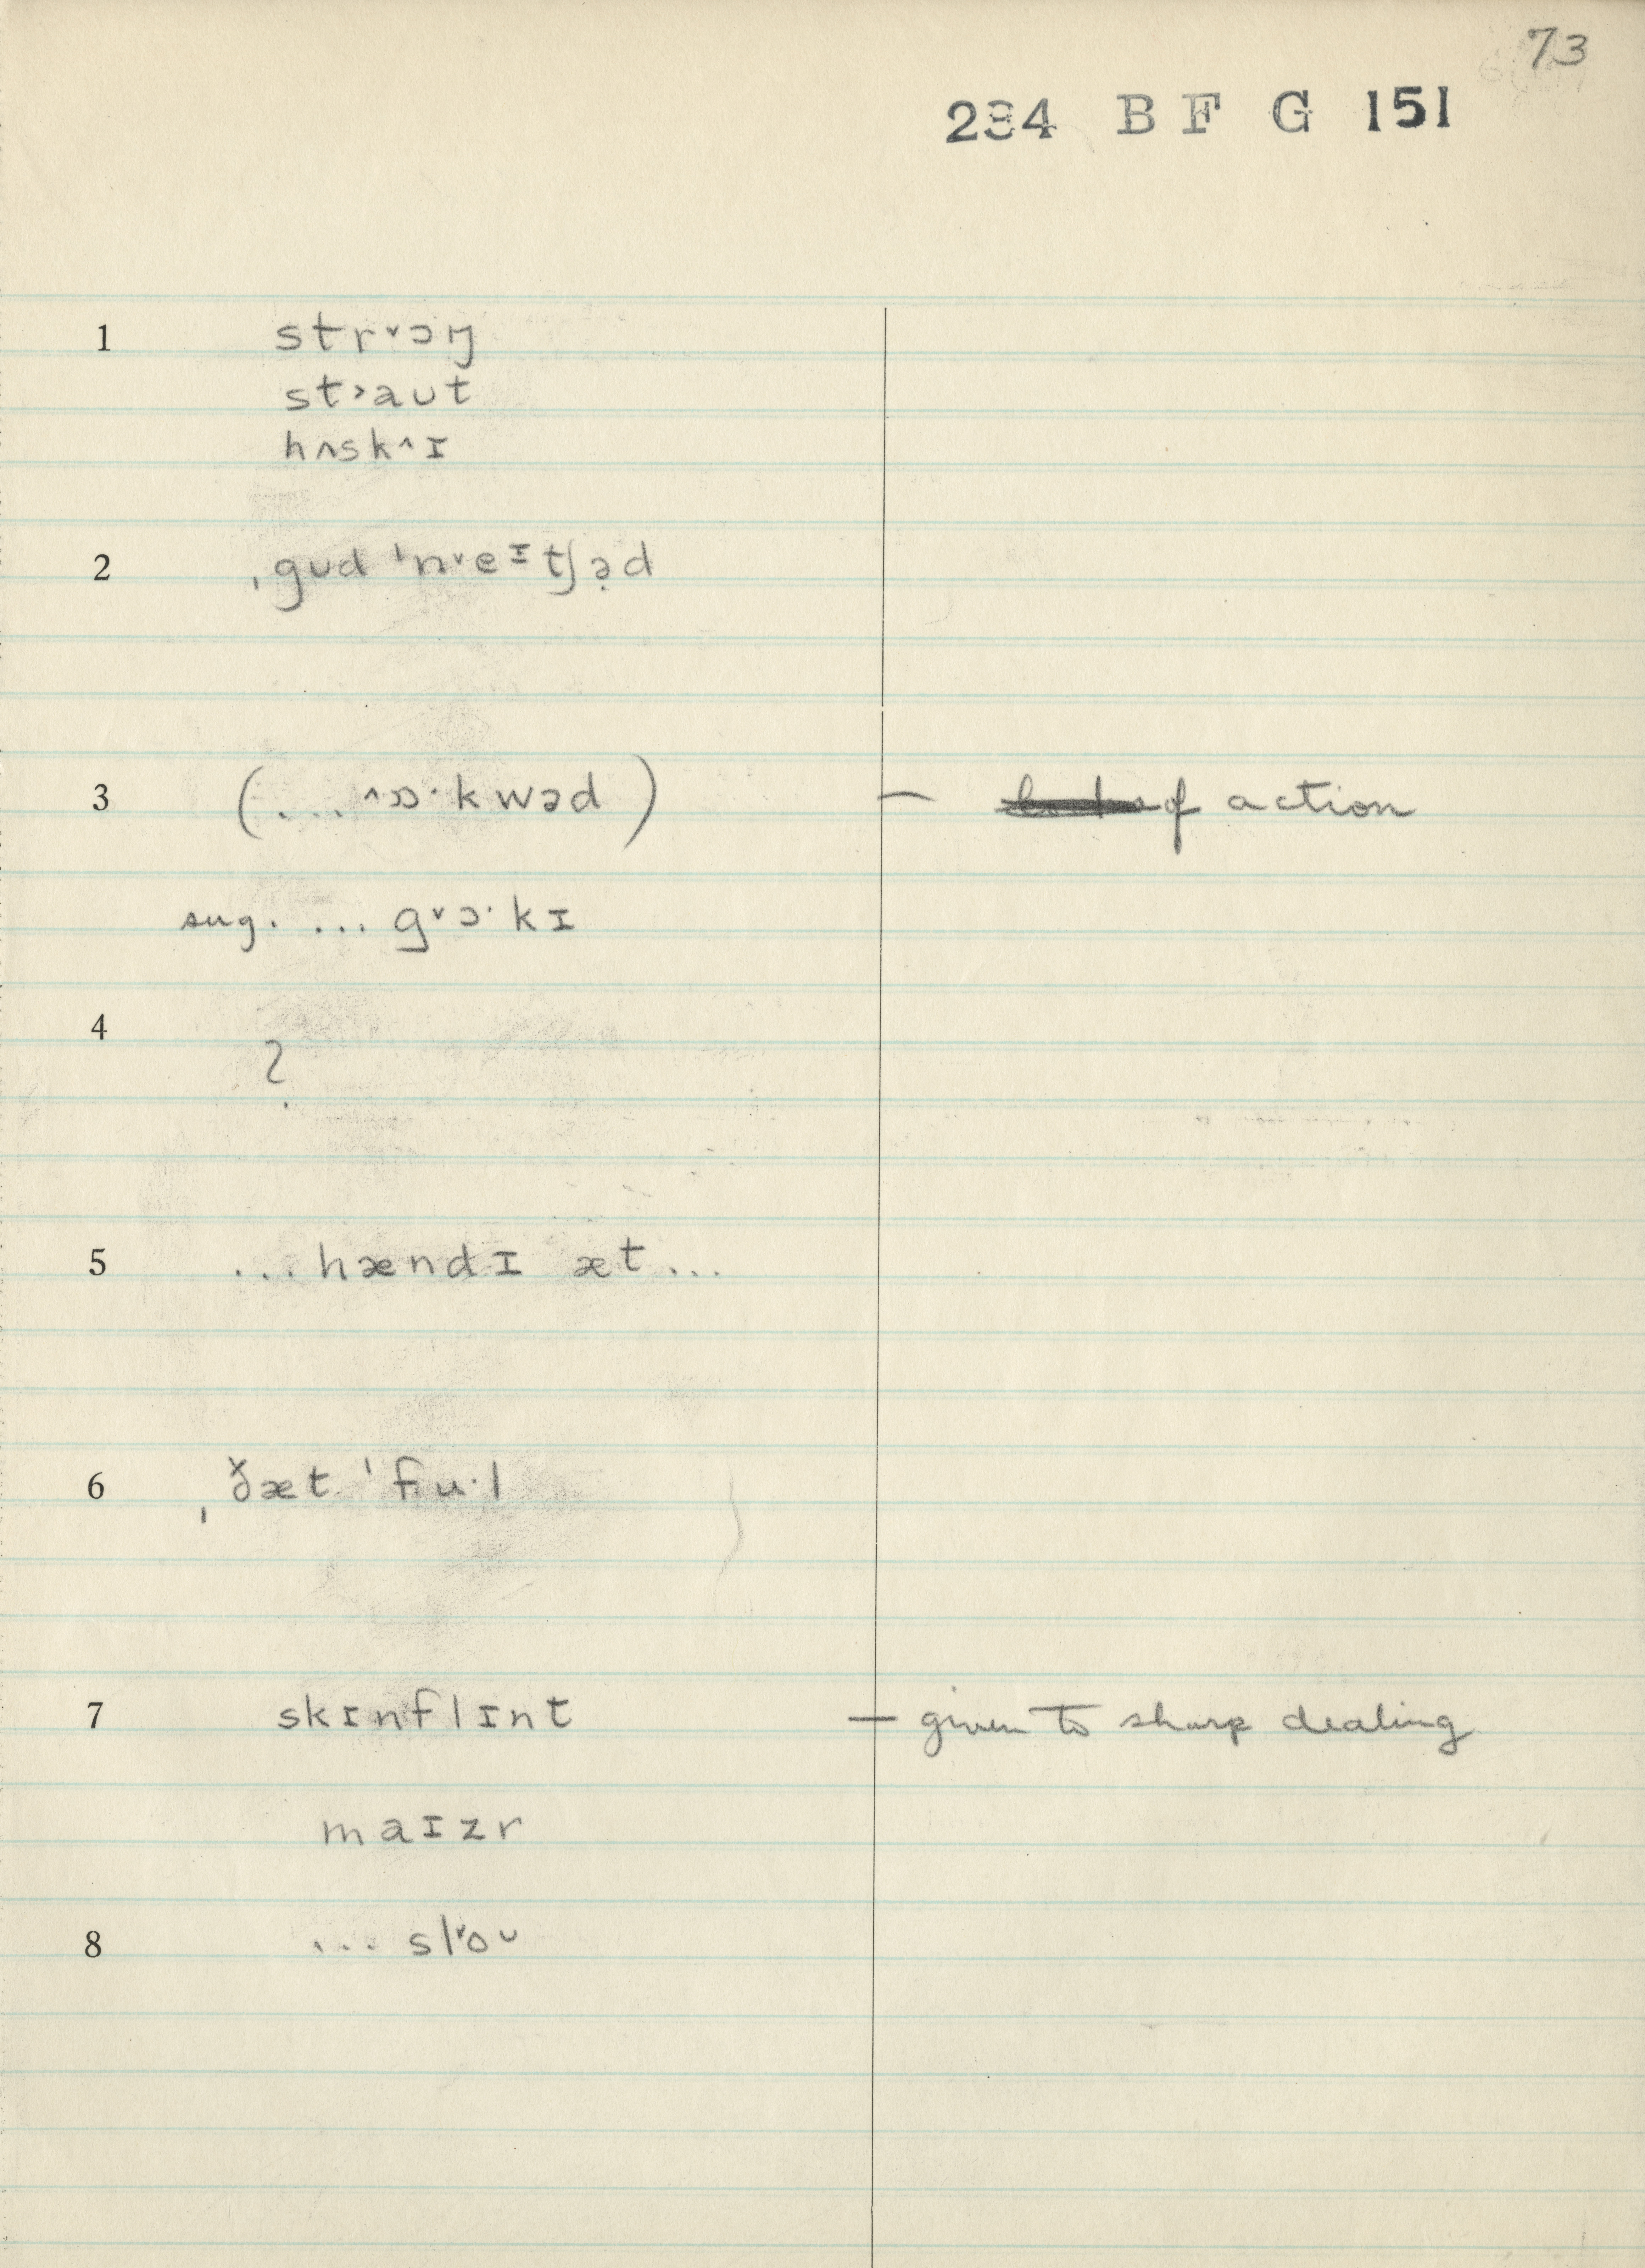 73
234 B F G 151
1 strᵛɔŋ
st˃aʊt
hʌsk^ɪ
2 ˌgʊd ˈnᵛeᶦtʃə̣d
3 (... ^ɒ·kwəd) — of action
sug. ... gᵛɔ·kɪ
4 ?
5 ...hændɪ æt...
6 ˌðæt ˈfu·l
7 skɪnflɪnt — given to sharp dealing
maɪzr
8 ... slᵛoᶷ